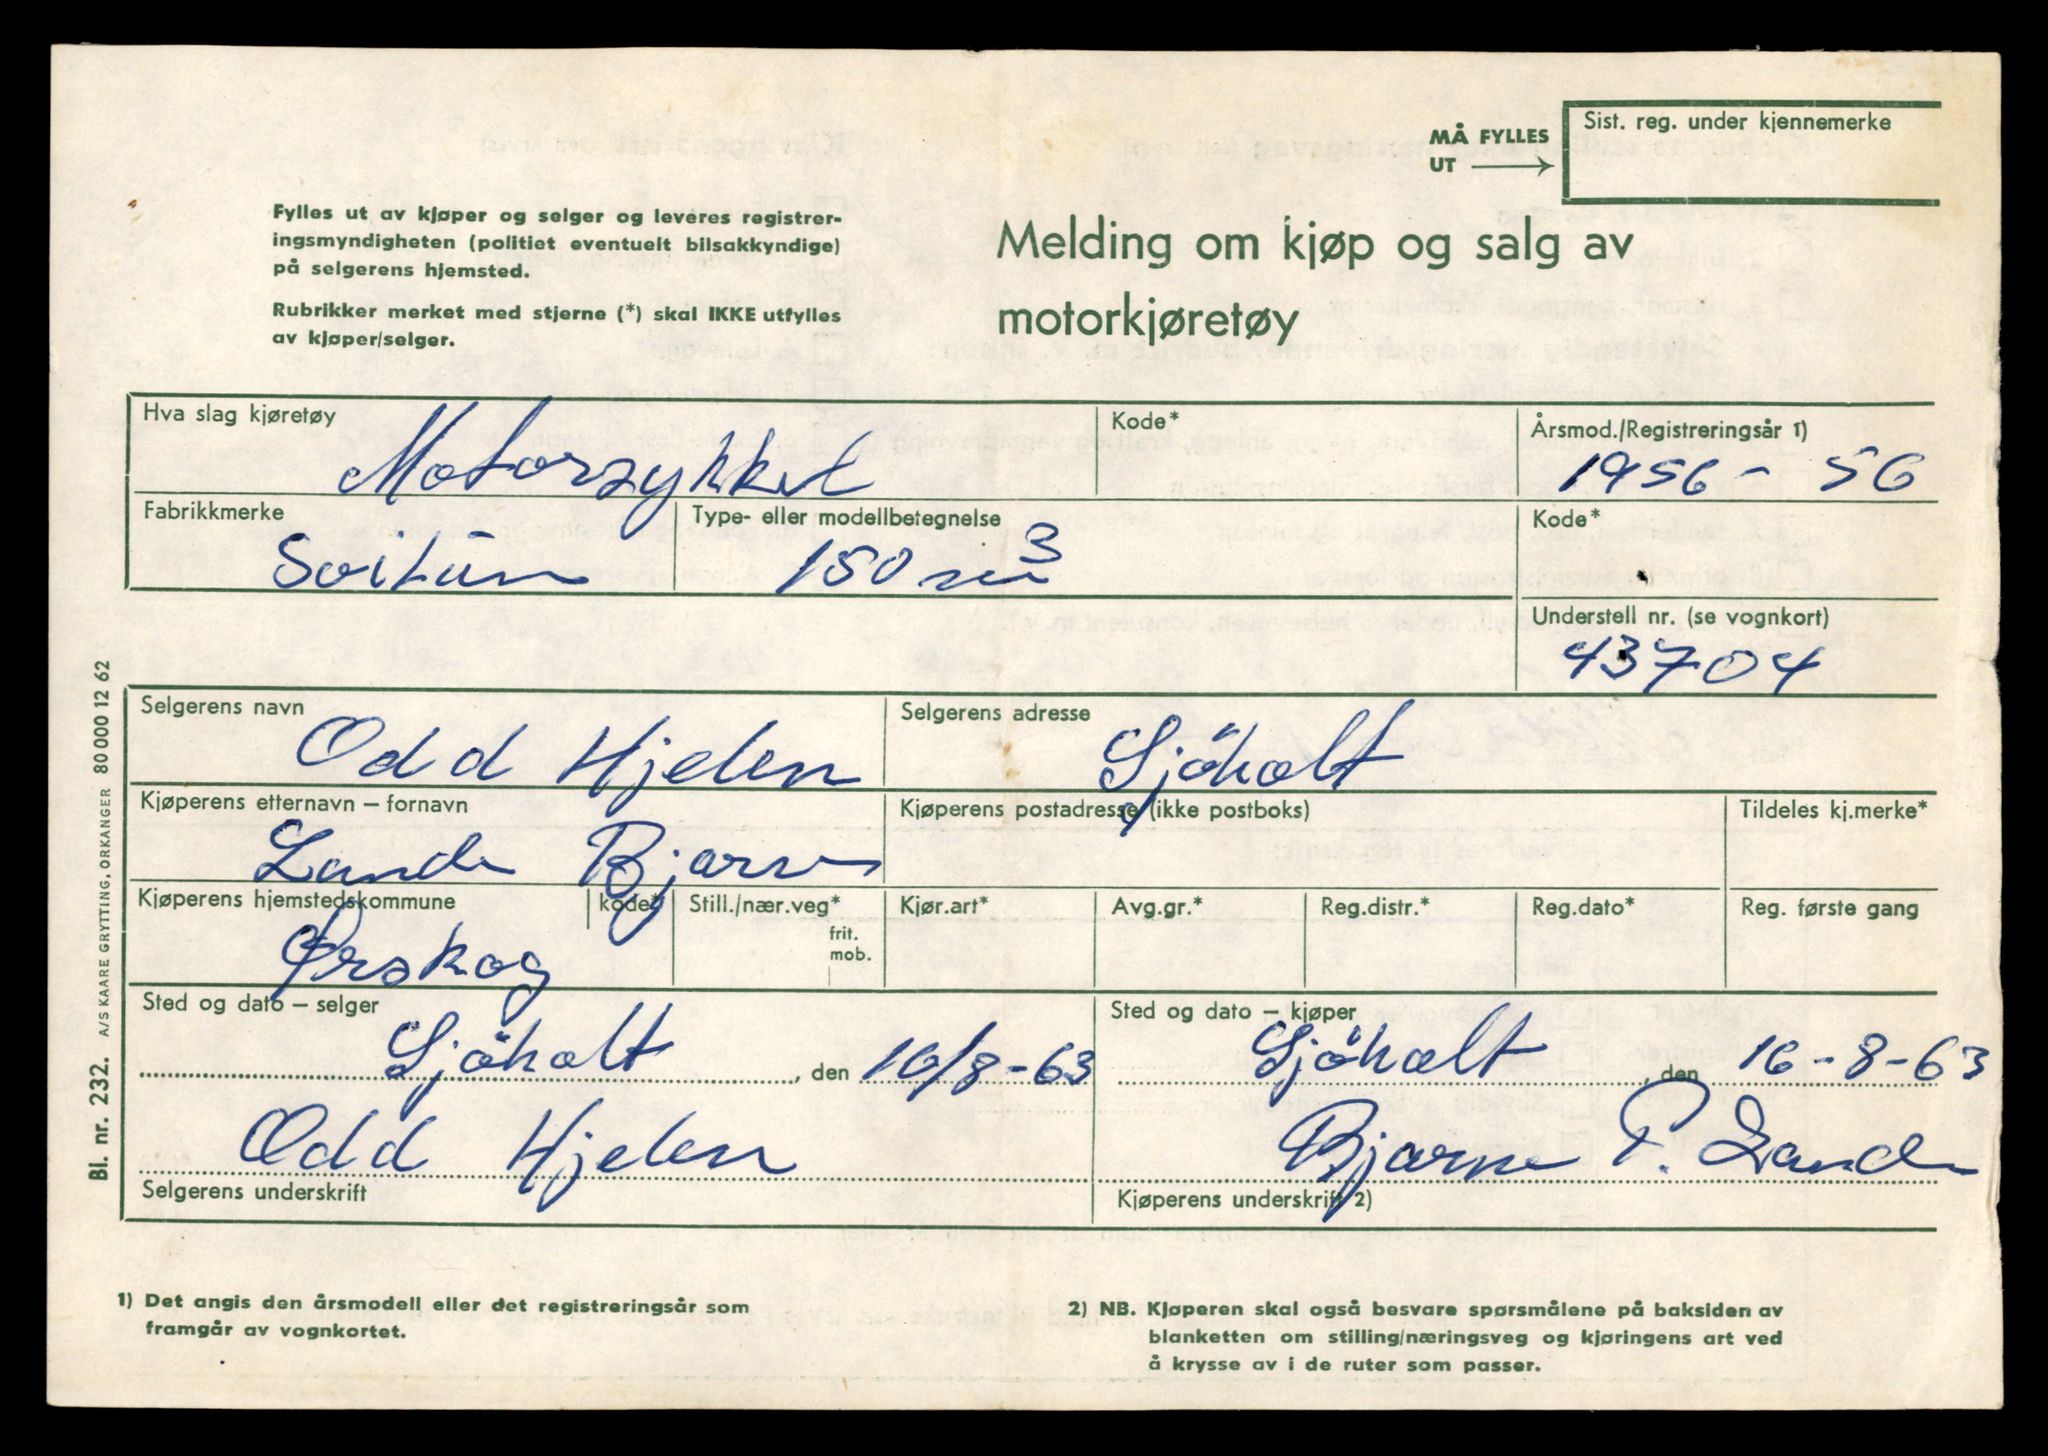 MÅ FYLLES
UT
Sist. reg. under kjennemerke
Fylles ut av kjøper og selger og leveres registrer-
ingsmyndigheten (politiet eventuelt bilsakkyndige)
på selgerens hjemsted.
Rubrikker merket med stjerne (*) skal IKKE utfylles
av kjøper/selger.
Melding om kjøp og salg av
motorkjøretøy
Hva slag kjøretøy
Motorsykkel
Kode*
Årsmod./Registreringsår 1)
1956 - 56
Fabrikkmerke
Type- eller modellbetegnelse
150 cm3
Kode*
Understell nr. (se vognkort)
43704
Selgerens navn
Odd Hjelen
Selgerens adresse
Sjöholt
Kjøperens etternavn – fornavn
Lande Bjarne
Kjøperens postadresse (ikke postboks)
Tildeles kj.merke*
Kjøperens hjemstedskommune
Ørskog
kode*
Still./nær.veg*
frit.
mob.
Kjør.art*
Avg.gr.*
Reg.distr.*
Reg.dato*
Reg. første gang
Sted og dato – selger
Sjöholt, den 16/8-63
Odd Hjelen
Selgerens underskrift
Sted og dato – kjøper
Sjöholt, den 16-8-63
Bjarne P. Lande
Kjøperens underskrift 2)
1) Det angis den årsmodell eller det registreringsår som
framgår av vognkortet.
2) NB. Kjøperen skal også besvare spørsmålene på baksiden av
blanketten om stilling/næringsveg og kjøringens art ved
å krysse av i de ruter som passer.
Bl. nr. 232. A/S KAARE GRYTTING, ORKANGER 80 000 12 62